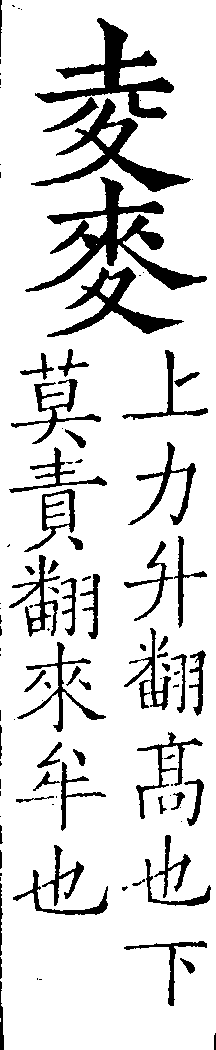 夌麥
上力升翻髙也下
莫責翻來牟也